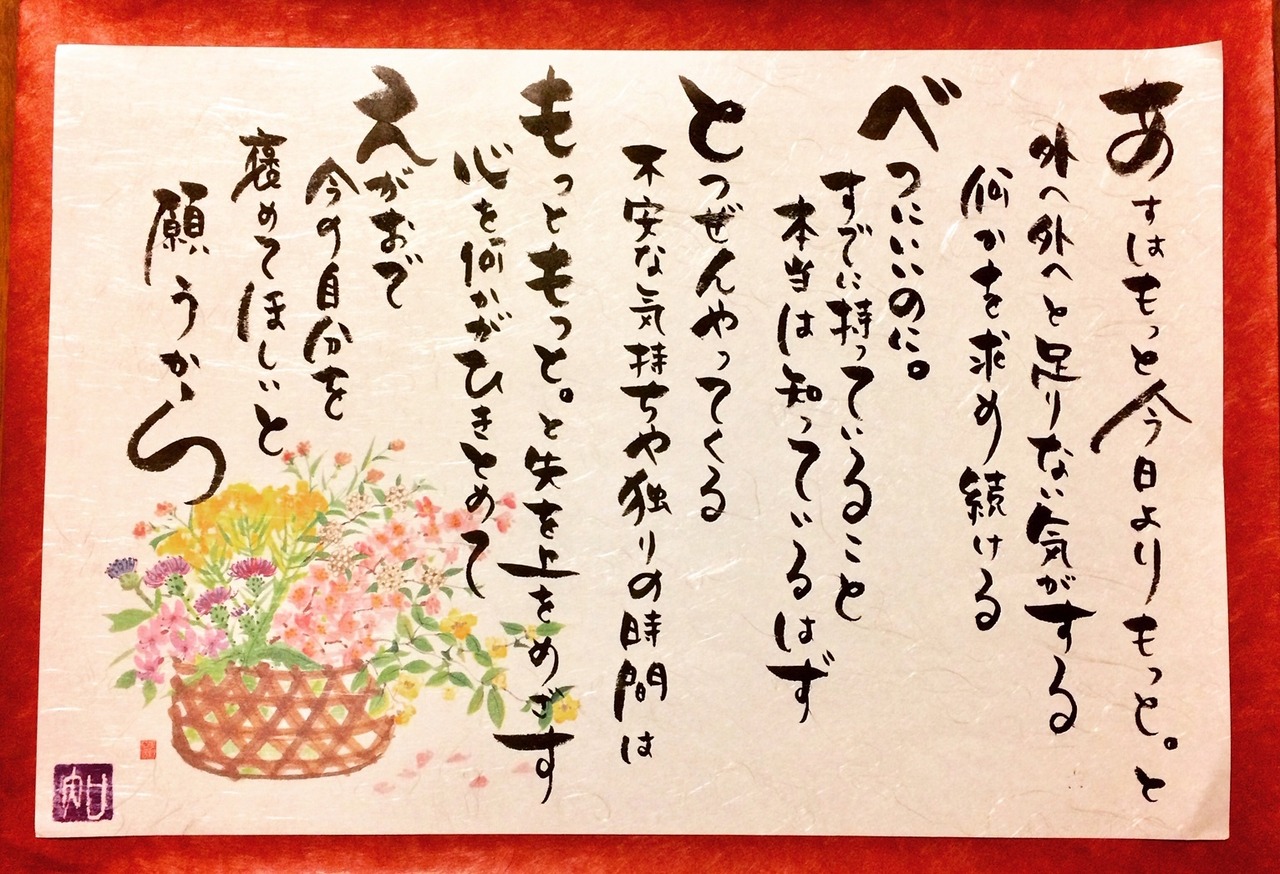 あすはもっと今日よりもっと。と
外へ外へと足りない気がする
何かを求め続ける
べつにいいのに。
すでに持っていること
本当は知っているはず
とつぜんやってくる
不安な気持ちや独りの時間は
もっともっと。と先を上をめざす
心を何かがひきとめて
えがおで
今の自分を
褒めてほしいと
願うから